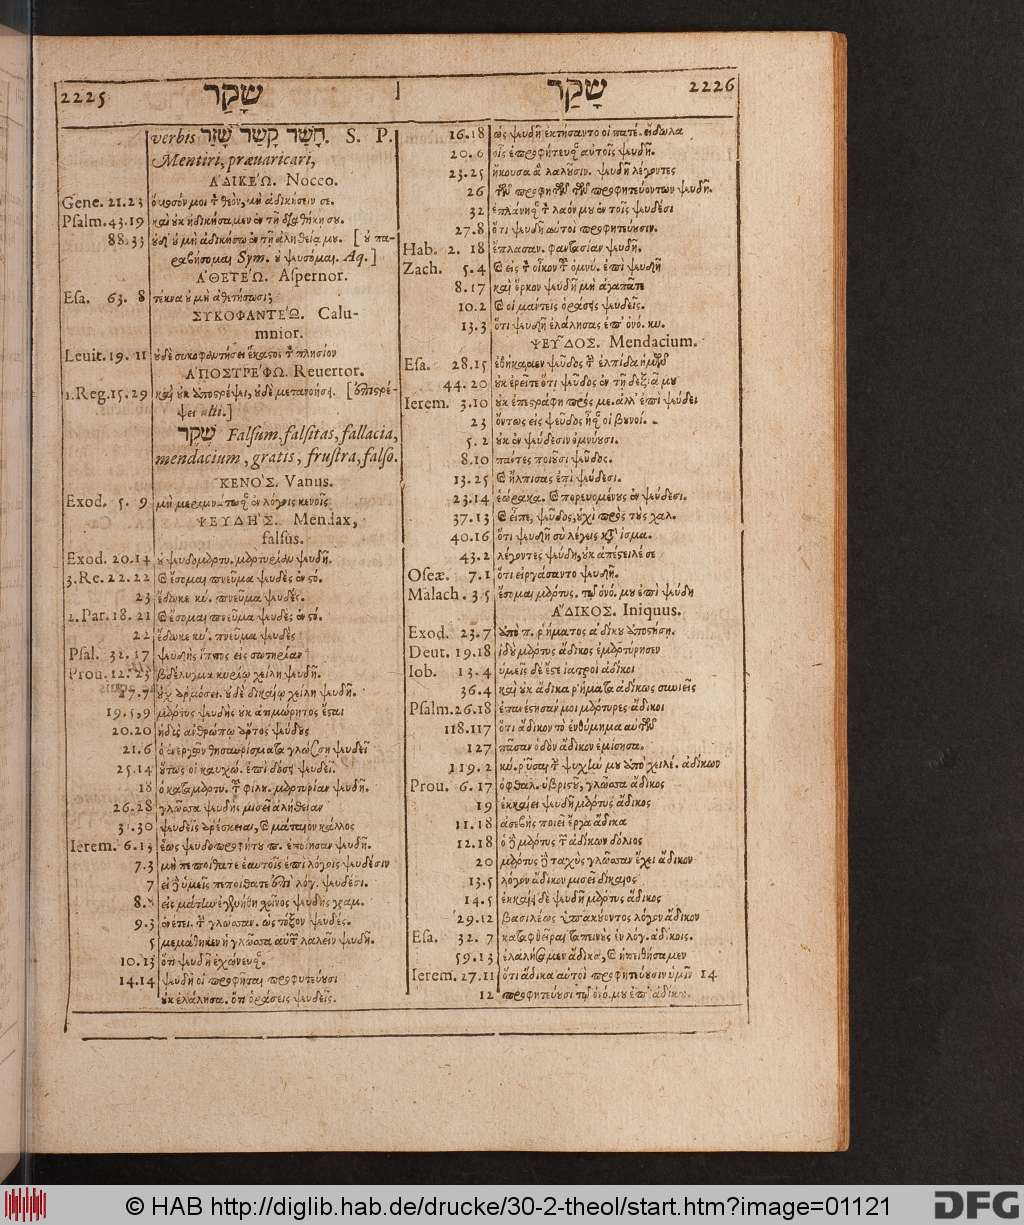 2225 שָׁקַר
verbis חָשַׁד קָשַׁר שָׁזַר. S. P.
Mentiri, præuaricari,
ἈΔΙΚΕΏ. Noceo.
Gene. 21.23 ὄμοσόν μοι τ θεόν, μὴ ἀδικήσειν σε.
Psalm. 43.19 καὶ οὐκ ἠδικήσαμεν ἐν τῇ διαθήκῃ σου.
88.33 οὐδ' οὐ μὴ ἀδικήσω ἐν τῇ ἀληθείᾳ μου. [οὐ πα-
ραβήσομαι Sym. οὐ ψεύσομαι. Aq.]
ἈΘΕΤΕΏ. Aspernor.
Esa. 63. 8 τέκνα οὐ μὴ ἀθετήσωσι;
ΣΥΚΟΦΑΝΤΕΏ. Calu-
mnior.
Leuit. 19. 11 οὐδὲ συκοφαντήσει ἕκαστος τ πλησίον
ἈΠΟΣΤΡΕΦΩ. Reuertor.
1.Reg. 15. 29 καὶ οὐκ ἀποστρέψει, οὐδὲ μετανοήσει. [ἐπιστρέ-
ψει alii.]
שֶׁקֶר Falsum, falsitas, fallacia,
mendacium, gratis, frustra, falso.
ΚΕΝΟΣ. Vanus.
Exod. 5. 9 μὴ μεριμνάτωσαν ἐν λόγοις κενοῖς
ΨΕΥΔΗΣ. Mendax,
falsus.
Exod. 20.14 οὐ ψευδομαρτυ. μαρτυρίαν ψευδῆ.
3.Re. 22.22 καὶ ἔσομαι πνεῦμα ψευδὲς ἐν στό.
23 ἔδωκε κύ. πνεῦμα ψευδὲς.
2.Par. 18. 21 καὶ ἔσομαι πνεῦμα ψευδὲς ἐν στό.
22 ἔδωκε κύ. πνεῦμα ψευδὲς
Psal. 32. 17 ψευδὴς ἵππος εἰς σωτηρίαν
Prou. 12. 23 βδέλυγμα κυρίῳ χείλη ψευδῆ.
17.7 οὐχ ἁρμόσει. οὐδὲ δικαίῳ χείλη ψευδῆ.
19. 5,9 μάρτυς ψευδὴς οὐκ ἀτιμώρητος ἔσται
20.20 ἡδὺς ἀνθρώπῳ ἄρτος ψεύδους
21.6 ὁ ἐνεργῶν θησαυρίσματα γλώσσῃ ψευδεῖ
25.14 οὕτως οἱ καυχώ. ἐπὶ δόσει ψευδεῖ.
18 ὁ καταμαρτυ. τ φίλου. μαρτυρίαν ψευδῆ.
26.28 γλῶσσα ψευδὴς μισεῖ ἀλήθειαν
31.30 ψευδεῖς ἀρέσκειαι, καὶ μάταιον κάλλος
Ierem. 6.13 ἕως ψευδοπροφήτου π. ἐποίησαν ψευδῆ.
7.3 μὴ πεποίθατε ἑαυτοῖς ἐπὶ λόγοις ψευδέσιν
7 εἰ δὲ ὑμεῖς πεποίθατε ἐπὶ λόγ. ψευδέσι.
8.8 εἰς μάτην ἐγενήθη σχοῖνος ψευδὴς γραμ.
9.3 ἐνέτει. τ γλῶσσαν. ὡς τόξον ψευδὲς.
5 μεμάθηκεν ἡ γλῶσσα αὐτῶν λαλεῖν ψευδῆ.
10.13 ὅτι ψευδῆ ἐχώνευσαν.
14.14 ψευδῆ οἱ προφῆται προφητεύουσι
οὐκ ἐλάλησα. ὅτι ὁράσεις ψευδεῖς.
שָׁקַר 2226
16.18 ὡς ψευδῆ ἐκτήσαντο οἱ πατέ. εἴδωλα
20.6 οἷς ἐπροφήτευσας αὐτοῖς ψευδῆ.
23.25 ἤκουσα ἃ λαλοῦσιν. ψευδῆ λέγοντες
26 τῶν προφητῶν τῶν προφητευόντων ψευδῆ.
32 ἐπλάνησαν τ λαόν μου ἐν τοῖς ψεύδεσι
27.8 ὅτι ψευδῆ αὐτοὶ προφητεύουσιν.
Hab. 2. 18 ἔπλασαν. φαντασίαν ψευδῆ.
Zach. 5.4 καὶ εἰς τ οἶκον τ ὀμνύ. ἐπὶ ψευδῆ
8.17 καὶ ὅρκον ψευδῆ μὴ ἀγαπᾶτε
10.2 καὶ οἱ μάντεις ὁράσεις ψευδεῖς.
13.3 ὅτι ψευδῆ ἐλάλησας ἐπ' ὀνό. κυ.
ΨΕΥΔΟΣ. Mendacium.
Esa. 28.15 ἐθήκαμεν ψεῦδος τ ἐλπίδα ἡμῶν
44. 20 οὐκ ἐρεῖτε ὅτι ψεῦδος ἐν τῇ δεξιᾷ μου
Ierem. 3.10 οὐκ ἐπεστράφη πρός με. ἀλλ' ἐπὶ ψεύδει
23 ὄντως εἰς ψεῦδος ἦσαν οἱ βουνοί.
5.2 οὐκ ἐν ψεύδεσιν ὀμνύουσι.
8.10 πάντες ποιοῦσι ψεῦδος.
13.25 καὶ ἤλπισας ἐπὶ ψεύδεσι.
23.14 ἑώρακα. καὶ πορευομένους ἐν ψεύδεσι.
37.13 καὶ εἶπε, ψεῦδος, οὐχὶ πρὸς τοὺς χαλ.
40.16 ὅτι ψευδῆ σὺ λέγεις κατ' ἰσμα.
43.2 λέγοντες ψευδῆ, οὐκ ἀπέστειλέ σε
Oseæ. 7.1 ὅτι εἰργάσαντο ψευδῆ.
Malach. 3 5 ἔσομαι μάρτυς. τῷ ὀνό. μου ἐπὶ ψεύδη
ἌΔΙΚΟΣ. Iniquus.
Exod. 23.7 ἀπὸ π. ῥήματος ἀδίκου ἀποστήσῃ.
Deut. 19.18 ἰδοὺ μάρτυς ἄδικος ἐμαρτύρησεν
Iob. 13.4 ὑμεῖς δὲ ἐστὲ ἰατροὶ ἄδικοι
36.4 καὶ οὐκ ἄδικα ῥήματα ἀδίκως συνιεῖς
Psalm. 26.18 ἐπανέστησάν μοι μάρτυρες ἄδικοι
118.117 ὅτι ἄδικον τὸ ἐνθύμημα αὐτῶν
127 πᾶσαν ὁδὸν ἄδικον ἐμίσησα.
119.2 κύ. ῥῦσαι τ ψυχήν μου ἀπὸ χειλέ. ἀδίκων
Prou. 6.17 ὀφθαλ. ὑβριστοῦ, γλῶσσα ἄδικος
19 ἐκκαίει ψευδῆ μάρτυς ἄδικος
11.18 ἀσεβὴς ποιεῖ ἔργα ἄδικα
12.18 ὁ δὲ μάρτυς τ ἀδίκων δόλιος
20 μάρτυς δὲ ταχὺς γλῶσσαν ἔχει ἄδικον
13.5 λόγον ἄδικον μισεῖ δίκαιος
14.5 ἐκκαίει δὲ ψευδῆ μάρτυς ἄδικος
29.12 βασιλέως ὑπακούοντος λόγον ἄδικον
Esa. 32. 7 καταφθεῖραι ταπεινοὺς ἐν λόγ. ἀδίκοις.
59.13 ἐλαλήσαμεν ἄδικα, καὶ ἠπειθήσαμεν
Ierem. 27.11 ὅτι ἄδικα αὐτοὶ προφητεύουσιν ὑμῖν 14
12 προφητεύουσι τῷ ὀνό. μου ἐπ' ἀδίκῳ.
© HAB http://diglib.hab.de/drucke/30-2-theol/start.htm?image=01121
DFG